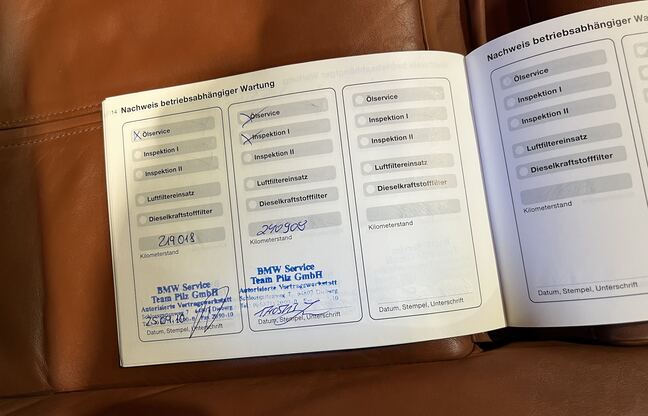 14 Nachweis betriebsabhängiger Wartung
Ölservice
Inspektion I
Inspektion II
Luftfiltereinsatz
Dieselkraftstofffilter
219018
Kilometerstand
BMW Service
Team Pilz GmbH
Autorisierte Vertragswerkstatt
Datum, Stempel, Unterschrift
Ölservice
Inspektion I
Inspektion II
Luftfiltereinsatz
Dieselkraftstofffilter
240903
Kilometerstand
BMW Service
Team Pilz GmbH
Autorisierte Vertragswerkstatt
Datum, Stempel, Unterschrift
Ölservice
Inspektion I
Inspektion II
Luftfiltereinsatz
Dieselkraftstofffilter
Kilometerstand
Datum, Stempel, Unterschrift
Nachweis betriebsabhängiger Wa
Ölservice
Inspektion I
Inspektion II
Luftfiltereinsatz
Dieselkraftstofffilter
Kilometerstand
Datum, Stempel, Unterschrift